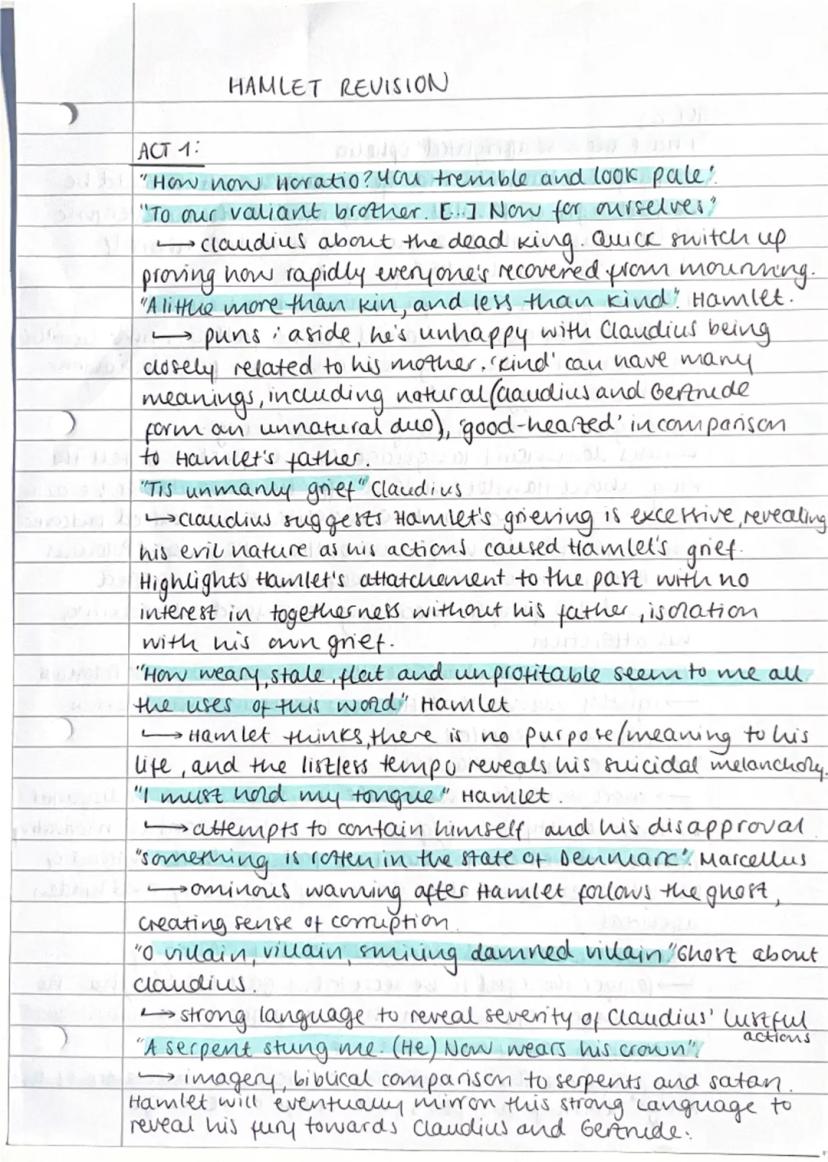 HAMLET REVISION
ACT 1:
"How now Horatio? You tremble and look pale".
"To our valiant brother. [...] Now for ourselves"
→ Claudius about the dead King. Quick switch up
proving how rapidly everyone's recovered from mourning.
"A little more than kin, and less than kind". Hamlet.
→ puns : aside he's unhappy with Claudius being
closely related to his mother. 'kind' can have many
meanings, including natural (Claudius and Gertrude
form an unnatural duo), 'good-hearted' in comparison
to Hamlet's father.
"Tis unmanly grief" Claudius
→ Claudius suggests Hamlet's grieving is excessive, revealing
his evil nature as his actions caused Hamlet's grief.
Highlights Hamlet's attatchement to the past with no
interest in togetherness without his father, isolation
with his own grief.
"How weary, stale, flat and unprofitable seem to me all
the uses of this world" Hamlet
→ Hamlet thinks, there is no purpose/meaning to his
life, and the listless tempo reveals his suicidal melancholy.
"I must hold my tongue" Hamlet.
→ attempts to contain himself and his disapproval.
"something is rotten in the state of Denmark". Marcellus
→ ominous warning after Hamlet follows the ghost,
creating sense of corruption.
"O villain, villain, smiling damned villain" Ghost about
Claudius.
→ strong language to reveal severity of Claudius' lustful
actions
"A serpent stung me. (He) Now wears his crown"
→ imagery, biblical comparison to serpents and satan.
Hamlet will eventually mirror this strong language to
reveal his fury towards Claudius and Gertrude.